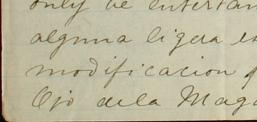 only be entertain
alguna ligera
modificacion
Ojo dela Mag